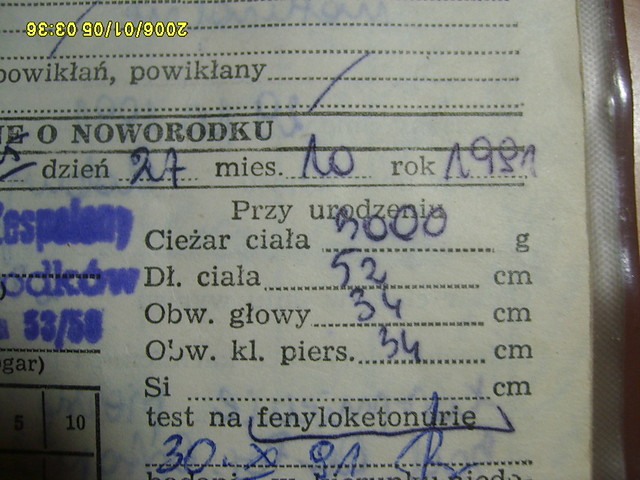 2006/01/05 03:36
powikłań, powikłany
O NOWORODKU
dzień 27 mies. 10 rok 1991
Przy urodzeniu
Zespolony
Cieżar ciała 3000 g
Dł. ciała 52 cm
53/59
Obw. głowy 34 cm
Obw. kl. piers. 34 cm
Si cm
5 10
test na fenyloketonurię
30 X 91